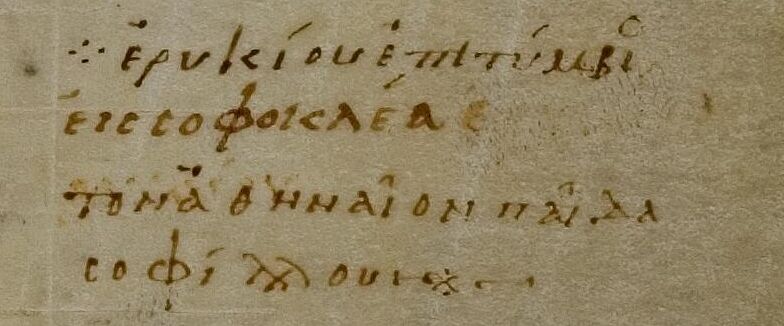 ⁘ ἐρυκίου ἐπιτύμβι
εἰς σοφοκλέα
τὸν ἀθηναῖον παῖδα
σοφίλλου